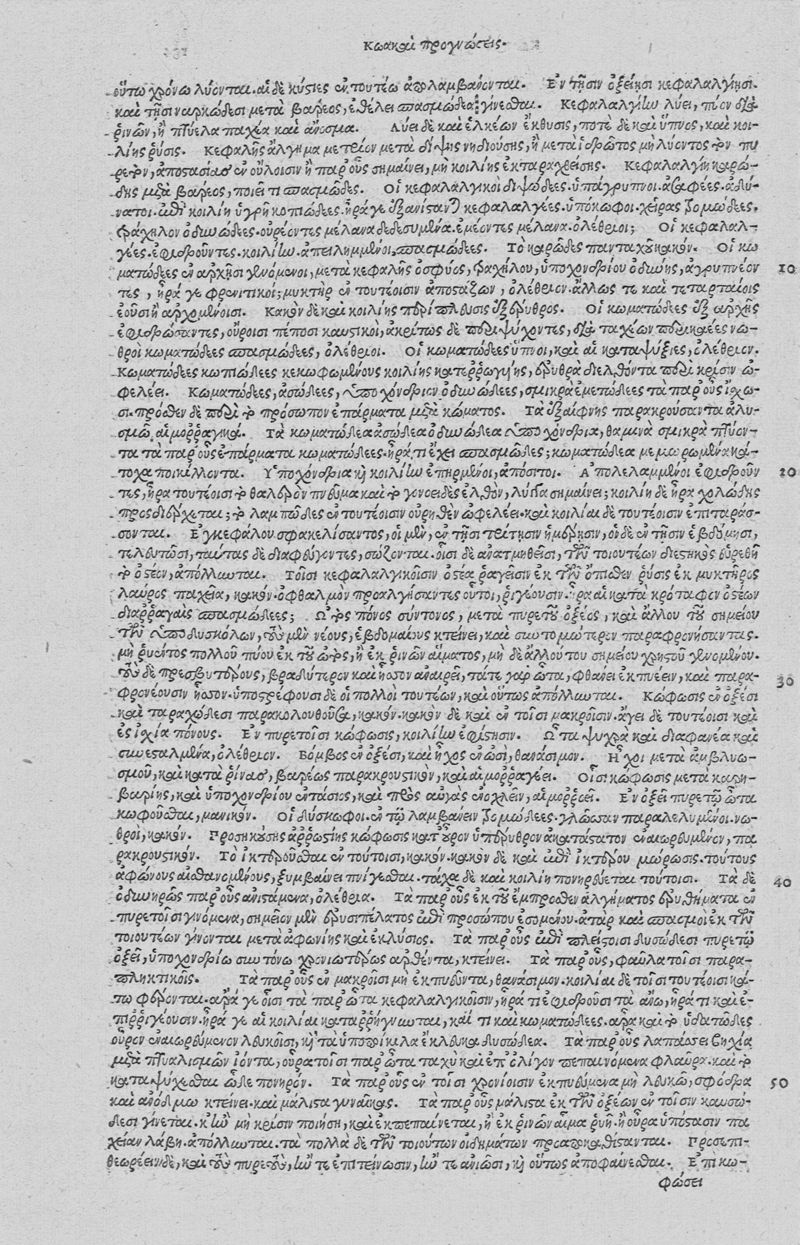 Κωακαὶ προγνώσεις.
οὕτω χρόνῳ λύονται. αἱ δὲ κύστιες ἐν τουτέῳ ἀπολαμβάνονται. Ἐν τῇσιν ὀξείῃσι κεφαλαλγίῃσι.
καὶ τῇσι ναρκώδεσι μετὰ βάρεος, ἐθέλει σπασμώδεα γίνεσθαι. Κεφαλαλγίην λύει, πύον διὰ
ῥινῶν, ἢ πτύελα παχέα καὶ ἄνοσμα. Λύει δὲ καὶ ἑλκέων ἔκθυσις, ποτὲ δὲ καὶ ὕπνος, καὶ κοι-
λίης ῥύσις. Κεφαλῆς ἄλγημα μέτριον μετὰ δίψης
ρετὸν, ἀποστασίας ἐν οὔλοισιν ἢ παρ' οὖς σημαίνει, μὴ κοιλίης ἐκταραχθείσης. Κεφαλαλγίη καρώ-
δης μετὰ βάρεος, ποιεῖ τι σπασμῶδες. Οἱ κεφαλαλγικοὶ διψώδεες. ὑπάγρυπνοι. ἀσαφέες. ἀδύ-
νατοι. ἐπὶ κοιλίῃ ὑγρῇ κοπιώδεες. ἦρά γε ἐξανίστανται κεφαλαλγέες. ὑπόκωφοι. χεῖρας τρομώδεες.
τράχηλον ὀδυνώδεες. οὐρέοντες μέλανα δεδασυμένα. ἐμέοντες μέλανα. ὀλέθριοι; Οἱ κεφαλαλ-
γέες. ἐφιδροῦντες. κοιλίην ἀπειλημμένοι. σπασμώδεες. Τὸ καρῶδες πανταχοῦ κακόν. Οἱ κω-
ματώδεες ἐν ἀρχῇσι γενόμενοι, μετὰ κεφαλῆς ὀσφύος, τραχήλου, ὑποχονδρίου ὀδύνης, ἀγρυπνέον 10
τες, ἦρά γε φρενιτικοί; μυκτὴρ ἐν τουτέοισιν ἀποστάζων, ὀλέθριον. ἄλλως τε καὶ τεταρταίοις
ἐοῦσιν ἢ ἀρχομένοισι. Κακὸν δὲ καὶ κοιλίης περίπλυσις ἐξέρυθρος. Οἱ κωματώδεες ἐξ ἀρχῆς
ἐφιδρώσαντες, οὔροισι πέποσι καυστικοὶ, ἀκρίτως δὲ περιψύχοντες, διὰ ταχέων περικαέες νω-
θροὶ κωματώδεες σπασμώδεες, ὀλέθριοι. Οἱ κωματώδεες ὕπνοι, καὶ αἱ καταψύξιες, ὀλέθριον.
Κωματώδεες κοπιώδεες κεκωφωμένους κοιλίης κατερρωγυίης, ἐρυθρὰ διελθόντα περὶ κρίσιν ὠ-
φελέει. Κωματώδεες, ἀσώδεες, ὑποχόνδριον ὀδυνώδεες, σμικρὰ ἐμετώδεες τὰ παρ' οὖς ἴσχω-
σι. πρόσθεν δὲ περὶ τὸ πρόσωπον ἐπάρματα μετὰ κώματος. Τὰ ἐξαίφνης παρακρούσαντα ἀλυ-
σμῷ, αἱμορραγικά. Τὰ κωματώδεα ἀσώδεα ὀδυνώδεα ὑποχόνδρια, θαμινὰ σμικρὰ πτύον-
τα τὰ παρ' οὖς ἐπάρματα κωματώδεες. ἦρά τι ἔχει σπασμῶδες;
Ὑποχόνδρια καὶ κοιλίην ἐπηρμένοι, ἀπόσιτοι. Ἀπολελαμμένοι ἐφιδροῦν 20
τες, ἦρα τουτέοισι τὸ θαλερὸν πνεῦμα καὶ τὸ γονοειδὲς ἐλθὸν, λύγγα σημαίνει; κοιλίη δὲ ἦρα χολώδης
προσδιέρχεται; τὸ λαμπῶδες ἐν τουτέοισιν οὐρηθὲν ὠφελέει. καὶ κοιλίαι δὲ τουτέοισιν ἐπιταράσ-
σονται. Ἐγκεφάλου σφακελίσαντος, οἱ μὲν, ἐν τῇσι τρίτῃσιν ἡμέρῃσιν, οἱ δὲ ἐν τῇσιν ἑβδόμῃσι,
τελευτῶσι, ταύτας δὲ διαφεύγοντες, σώζονται. οἷσι δὲ ἀνατμηθεῖσι, τῶν τοιουτέων διεστηκὸς εὑρεθῇ
τὸ ὀστέον, ἀπόλλυνται. Τοῖσι κεφαλαλγικοῖσιν ὀστέα ῥαγεῖσιν ἐκ τῶν ὄπισθεν ῥύσις ἐκ μυκτῆρος
λαῦρος παχεῖα, κακόν. ὀφθαλμὸν προαλγήσαντες οὗτοι, ῥιγέουσιν. ἦρα αἱ κατὰ κρόταφον ὀστέων
διαρραγαὶ σπασμώδεες; Ὠτὸς πόνος σύντονος, μετὰ πυρετοῦ ὀξέος, καὶ ἄλλου τοῦ σημείου
τῶν ὑποδυσκόλων, τοὺς μὲν νέους, ἑβδομαίους κτείνει, καὶ συντομώτερον παραφρονήσαντας.
μὴ ῥυέντος πολλοῦ πύου ἐκ τοῦ ὠτὸς, ἢ ἐκ ῥινῶν αἵματος, μὴ δὲ ἄλλου του σημείου χρηστοῦ γενομένου.
τοὺς δὲ πρεσβυτέρους, βραδύτερον καὶ ἧσσον ἀναιρεῖ, τά τε γὰρ ὦτα, φθάνει ἐκπυέειν, καὶ παρα- 30
φρονέουσιν ἧσσον. ὑποστρέφουσι δὲ οἱ πολλοὶ τουτέων, καὶ οὕτως ἀπόλλυνται. Κώφωσις ἐν ὀξέσι
καὶ ταραχώδεσι παρακολουθοῦσα, κακόν. κακὸν δὲ καὶ ἐν τοῖσι μακροῖσιν. ἄγει δὲ τουτέοισι καὶ
ἐς ἰσχία πόνους. Ἐν πυρετοῖσι κώφωσις, κοιλίην ἐφίστησιν. Ὦτα ψυχρὰ καὶ διαφανέα καὶ
συνεσταλμένα, ὀλέθριον. Βόμβος ἐν ὀξέσι, καὶ ἦχος ἐν ὠσὶ, θανάσιμον. Ἦχοι μετὰ ἀμβλυω-
σμοῦ, καὶ κατὰ ῥῖνας, βαρέως παρακρουστικὸν, καὶ αἱμορραγέει. Οἷσι κώφωσις μετὰ καρη-
βαρίης, καὶ ὑποχονδρίου ἐντάσιος, καὶ πρὸς αὐγὰς ἐνοχλεῖν, αἱμορροεῖ. Ἐν ὀξεῖ πυρετῷ ὦτα
κωφοῦσθαι, μανικόν. Οἱ δύσκωφοι. ἐν τῷ λαμβάνειν τρομώδεες. γλῶσσαν παραλελυμένοι. νω-
θροὶ, κακόν. Προσηκούσης ἀρρωστίης κώφωσις καὶ οὖρον ὑπέρυθρον ἀκατάστατον ἐναιωρεύμενον, πα
ρακρουστικόν. Τὸ ἰκτεροῦσθαι ἐν τούτοισι, κακόν. κακὸν δὲ καὶ ἐπὶ ἰκτέρου μώρωσις. τούτους
ἀφώνους αἰσθανομένους, ξυμβαίνει πνίγεσθαι. τάχα δὲ καὶ κοιλίη πονηρεύεται τούτοισι. Τὰ δὲ 40
ὀδυνηρῶς παρ' οὖς ἀνιστάμενα, ὀλέθρια. Τὰ παρ' οὖς ἐκ τοῦ ἔμπροσθεν ἀλγήματος ἐρυθήματα ἐν
πυρετοῖσι γινόμενα, σημεῖον μὲν ἐρυσιπέλατος ἐπὶ προσώπου ἐσομένου. ἀτὰρ καὶ σπασμοὶ ἐκ τῶν
τοιουτέων γίνονται μετὰ ἀφωνίης καὶ ἐκλύσιος. Τὰ παρ' οὖς ἐπὶ πλείστοισι δυσώδεσι πυρετῷ
ὀξεῖ, ὑποχονδρίῳ συντόνῳ χρονιωτέρως ἀρθέντα, κτείνει. Τὰ παρ' οὖς, φαῦλα τοῖσι παρα-
πληκτικοῖς. Τὰ παρ' οὖς ἐν μακροῖσι μὴ ἐκπυεῦντα, θανάσιμον. κοιλίαι δὲ τοῖσι τουτέοισι κά-
τω φέρονται. ἆρά γε οἷσι τὰ παρ' ὦτα κεφαλαλγικοῖσιν, ἦρά τι ἐφιδροῦσι τὰ ἄνω, ἦρά τι καὶ ἐ-
πιρριγέουσιν. ἦρά γε αἱ κοιλίαι καταρρήγνυνται, καί τι καὶ κωματώδεες. ἆρα καὶ τὰ ὑδατώδεες
οὖρον ἐναιωρεύμενον λευκοῖσι, καὶ τὰ ὑποποίκιλα ἔκλευκα δυσώδεα. Τὰ παρ' οὖς λαπάσσει βηχία
μετὰ πτυαλισμῶν ἰόντα, οὖρα τοῖσι παρ' ὦτα ταχὺ καὶ ἐπ' ὀλίγον πεπαινόμενα φλαῦρα. καὶ τὸ
καταψύχεσθαι ὧδε πονηρόν. Τὰ παρ' οὖς ἐν τοῖσι χρονίοισιν ἐκπυεύμενα μὴ λευκῷ, σφόδρα 50
καὶ ἀνόδμῳ κτείνει. καὶ μάλιστα γυναῖκας. Τὰ παρ' οὖς μάλιστα ἐκ τῶν ὀξέων ἐν τοῖσιν καυσώ-
δεσι γίνεται. κἢν μὴ κρίσιν ποιήσῃ, καὶ ἐκπεπαίνεται, ἢ ἐκ ῥινῶν αἷμα ῥυῇ, ἢ οὖρα ὑπόστασιν πα
χεῖαν λάβῃ. ἀπόλλυνται. τὰ πολλὰ δὲ τῶν τοιούτων οἰδημάτων προαποκαθίστανται. Προσεπι-
θεωρέειν δὲ, καὶ τοὺς πυρετοὺς, ἤν τε ἐπιτείνωσιν, ἤν τε ἀνιῶσι, καὶ οὕτως ἀποφαίνεσθαι. Ἐπὶ κω-
φώσει